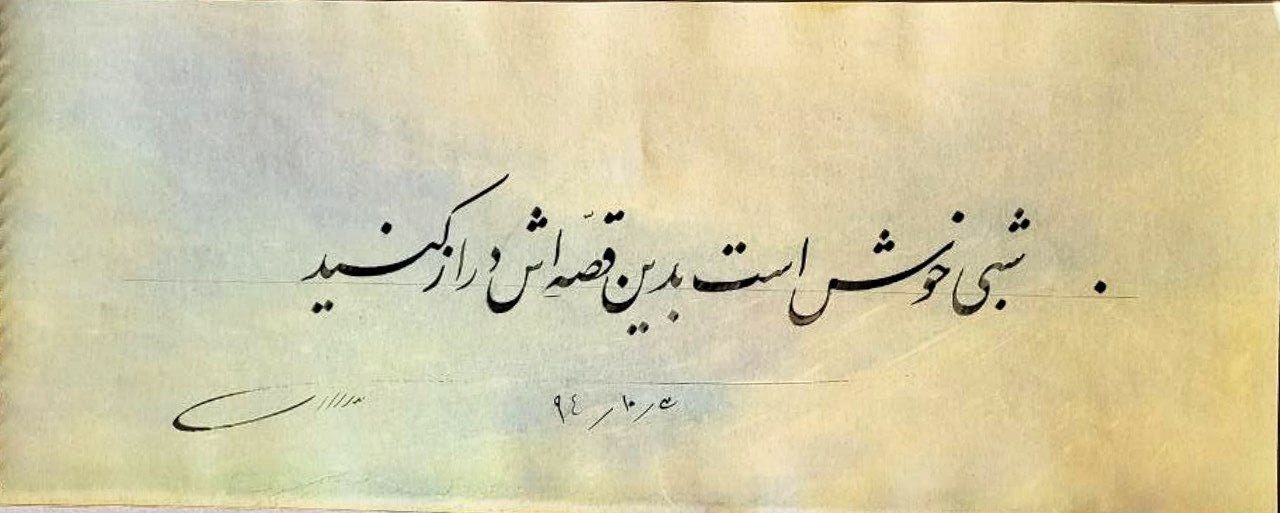 شبی خوش است بدین قصّه‌اش دراز کنید
۹۴/۱۰/۳